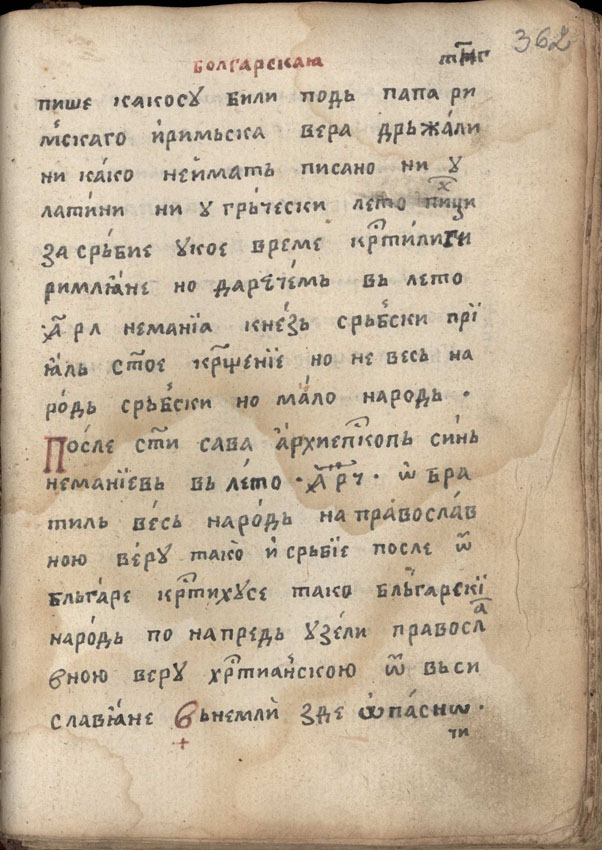 болгарскаꙗ т҃нг 362
пише какосꙋ били подь папа ри
мскаго и҆римьска вера дрьжа́ли
ни ка́ко неи́мать писано ни ꙋ
лати́ни ни ꙋ гре́чески лето
за сре́бие ꙋкое време кр҃тили ги
римлꙗ́не но да рече́мь вь лето
҂а҃ рл неманїа кне́зь срьбски прї
ꙗ́ль ст҃ое кр҃щенїе но не весь на
ро́дь срьбски но ма́ло народь ·
По́сле ст҃и сава а҆рхиеп҃копь синь
нема́нїевь вь ле́то · ҂а҃ р҃ч · ѡ҆бра
тиль ве́сь наро́дь на правосла́в
ною ве́рꙋ тако̀ и҆ срьбїе после ѿ
бльга́ре кр҃тихꙋсе тако бльгарскї
наро́дь по напредь ꙋзе́ли правосла
вною верꙋ хр҃тиа́нскою ѿ вьси
славꙗ́не вьнемлѝ зде ѡ҆па́снѡ ·
ти